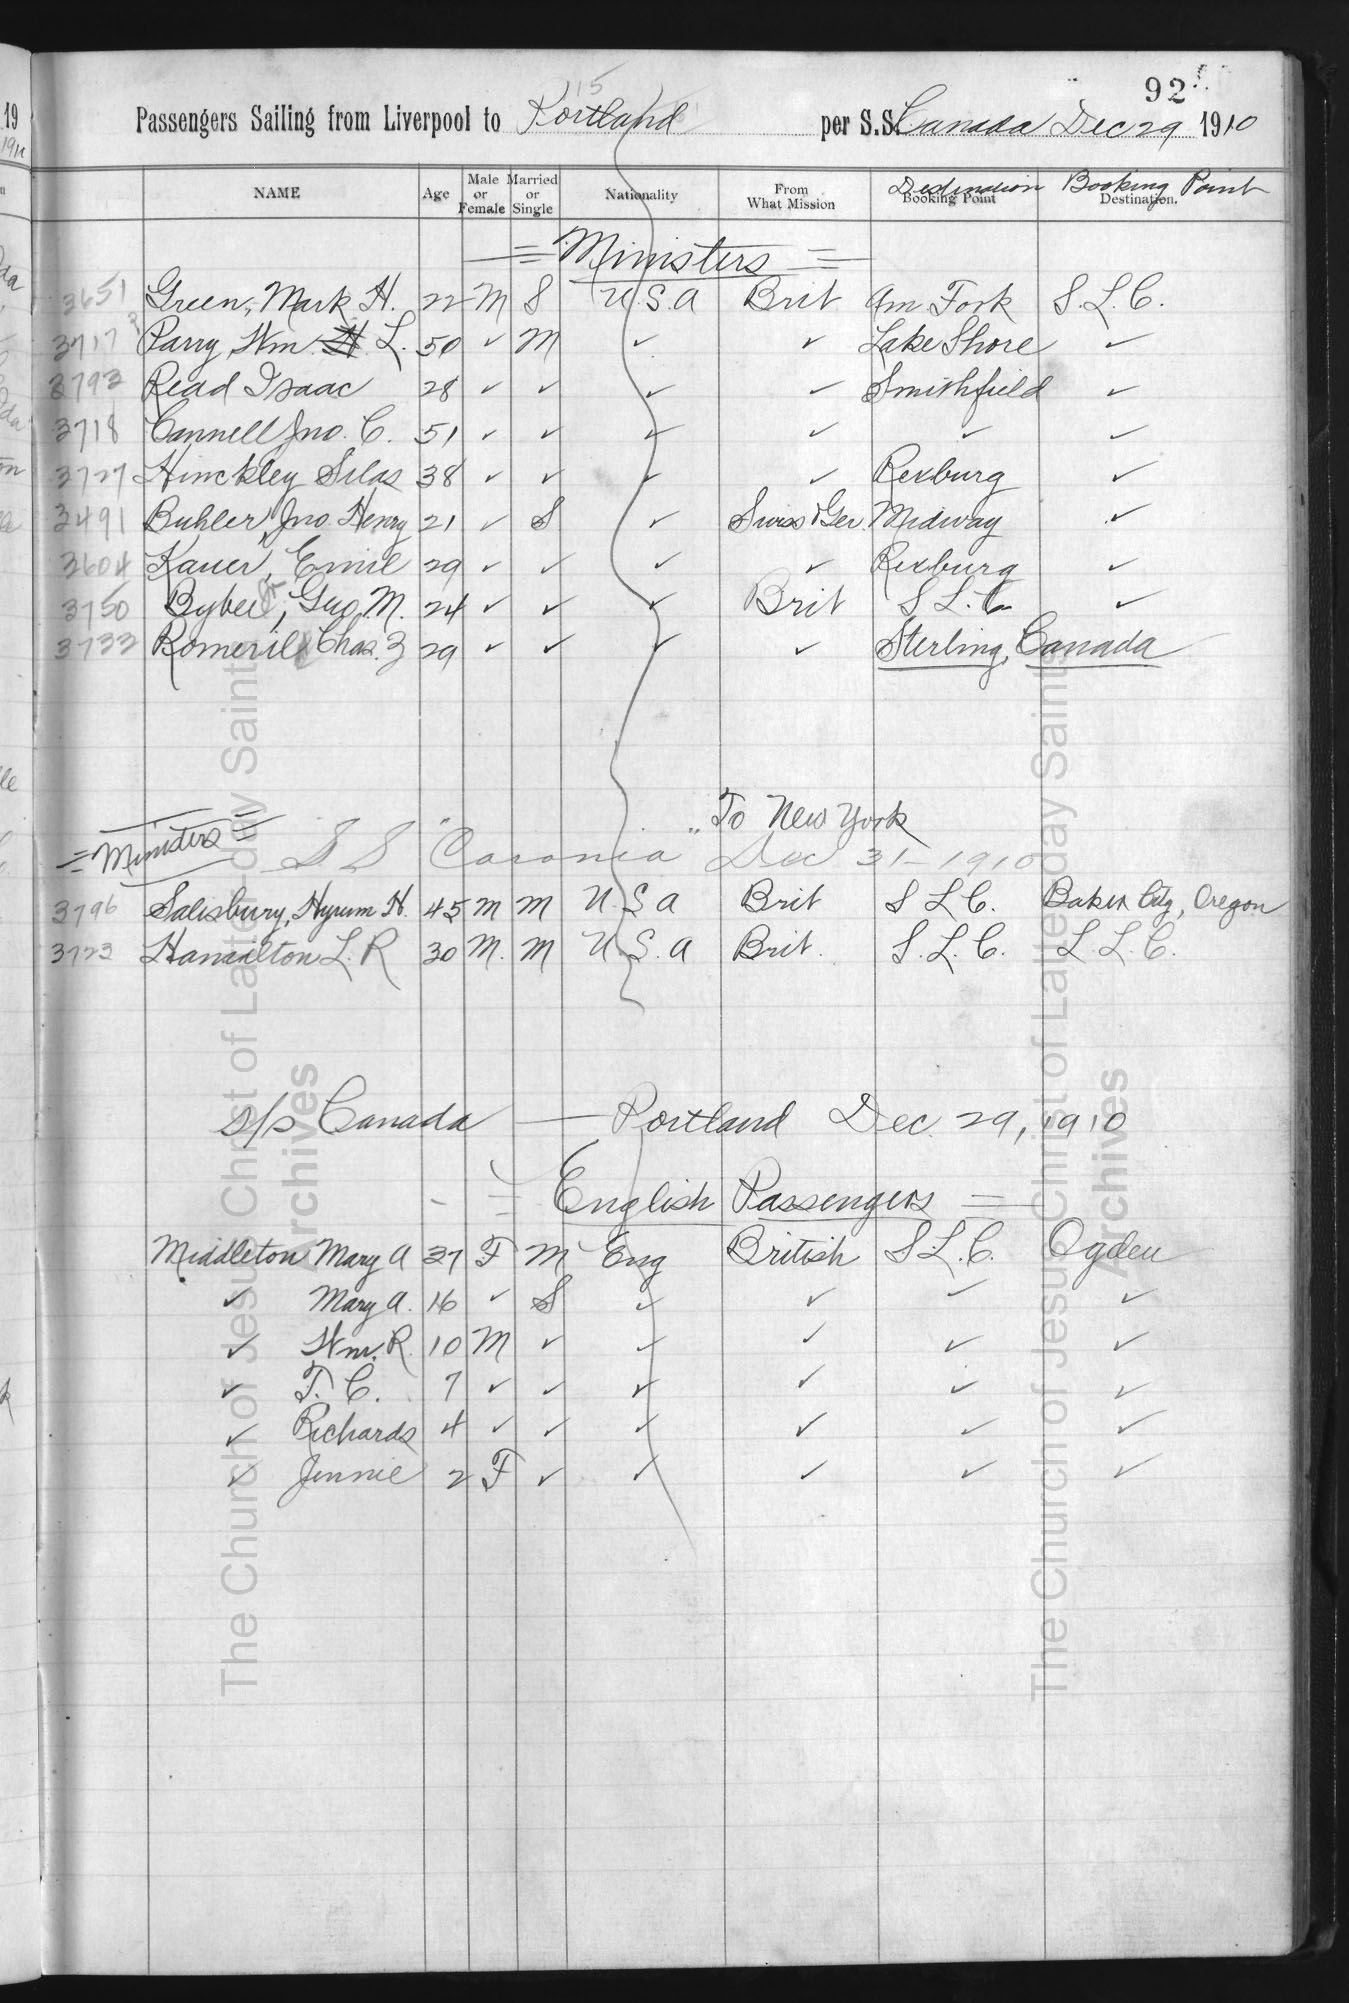 92
15
Passengers Sailing from Liverpool to Portland per S.S. Canada Dec 29 1910
NAME Age Male or Female Married or Single Nationality From What Mission Destination Booking Point Booking Point Destination.
= Ministers =
3651 Green, Mark H. 22 M S U.S.A Brit Am Fork S.L.C.
3717 Parry, Wm. L. 50 ✓ M ✓ ✓ Lake Shore ✓
3793 Read Isaac 28 ✓ ✓ ✓ ✓ Smithfield ✓
3718 Cannell Jno. C. 51 ✓ ✓ ✓ ✓ ✓ ✓
3727 Hinckley Silas 38 ✓ ✓ ✓ ✓ Rexburg ✓
3491 Buhler, Jno. Henry 21 ✓ S ✓ Swiss & Ger. Midway ✓
3604 Kauer, Emil 29 ✓ ✓ ✓ ✓ Rexburg ✓
3750 Bybee Jr, Geo. M. 24 ✓ ✓ ✓ Brit S L. C ✓
3733 Romeril Chas. Z 29 ✓ ✓ ✓ ✓ Sterling, Canada
To New York
= Ministers = S S "Caronia" Dec 31-1910
3796 Salisbury, Hyrum H. 45 M M U.S.A Brit S L C. Baker City, Oregon
3723 Hamilton L. R 30 M. M U.S.A Brit. S. L. C. S. L. C.
s/s Canada — Portland Dec. 29, 1910
= English Passengers =
Middleton Mary A 37 F M Eng British S.L.C. Ogden
✓ Mary A. 16 ✓ S ✓ ✓ ✓ ✓
✓ Wm. R. 10 M ✓ ✓ ✓ ✓ ✓
✓ T. C. 7 ✓ ✓ ✓ ✓ ✓ ✓
✓ Richards 4 ✓ ✓ ✓ ✓ ✓ ✓
✓ Jennie 2 F ✓ ✓ ✓ ✓ ✓
The Church of Jesus Christ of Latter-day Saints
Archives
The Church of Jesus Christ of Latter-day Saints
Archives